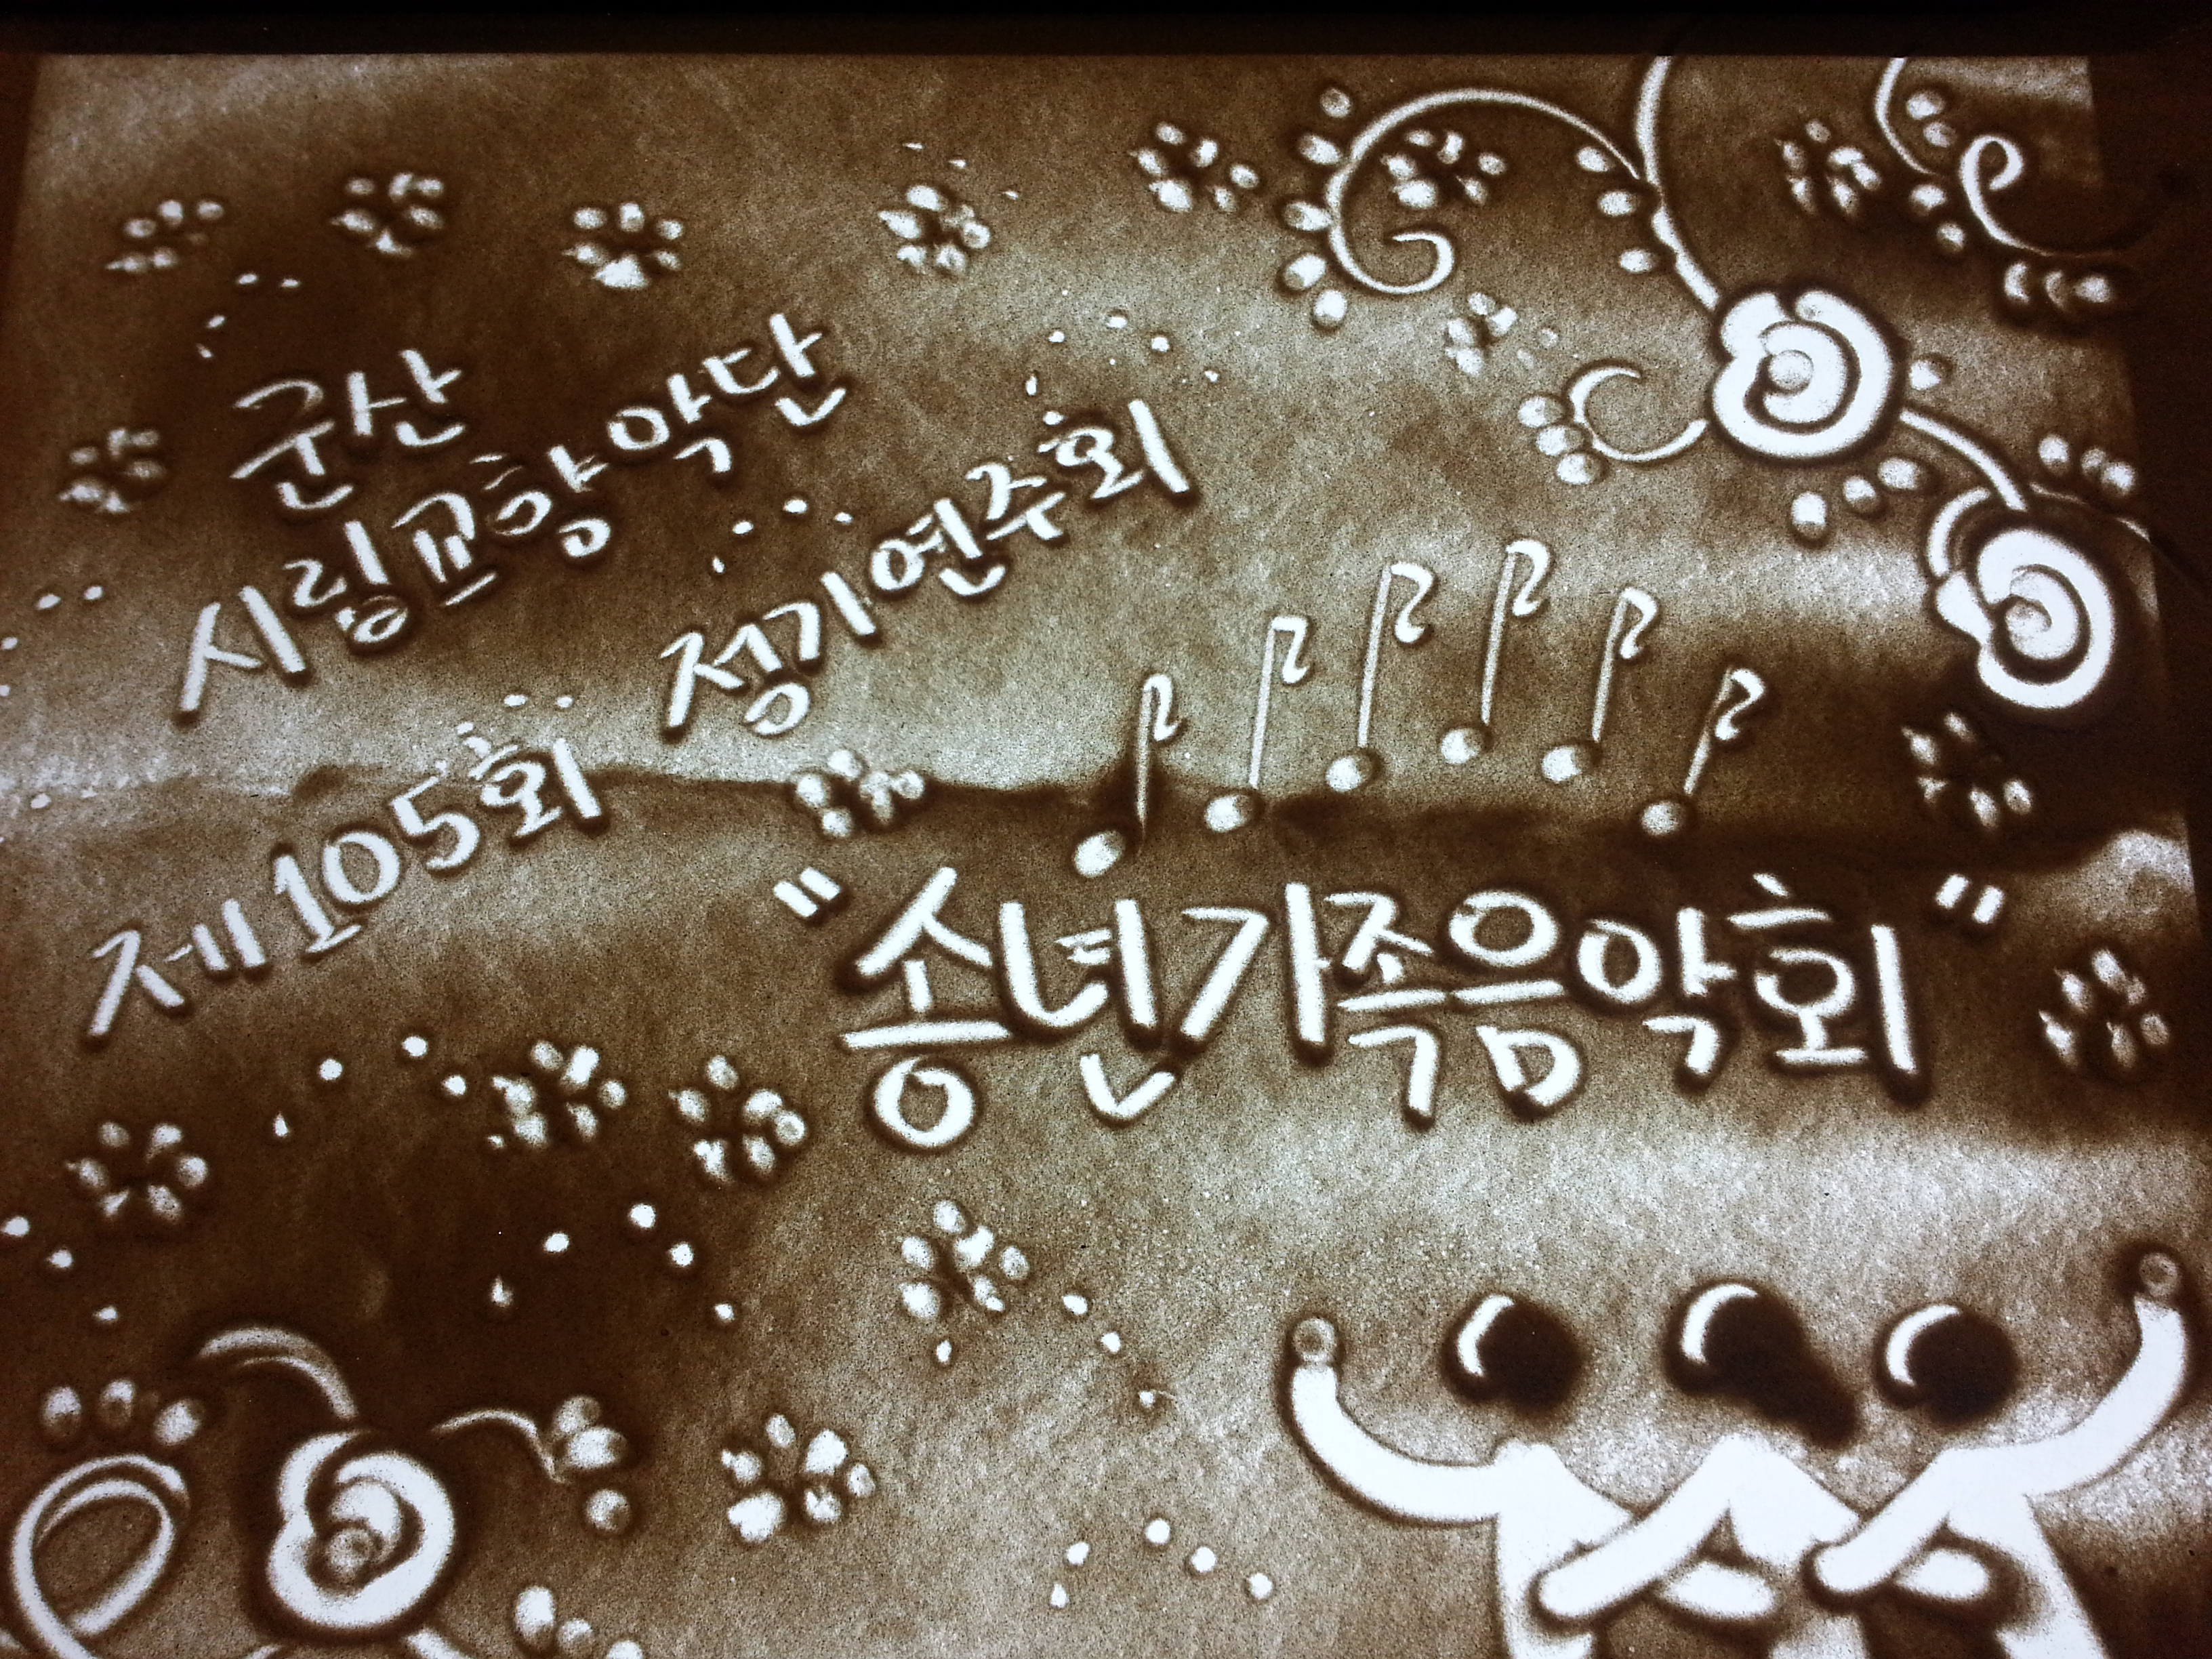 군산
시립교향악단
제105회 정기연주회
"송년가족음악회"